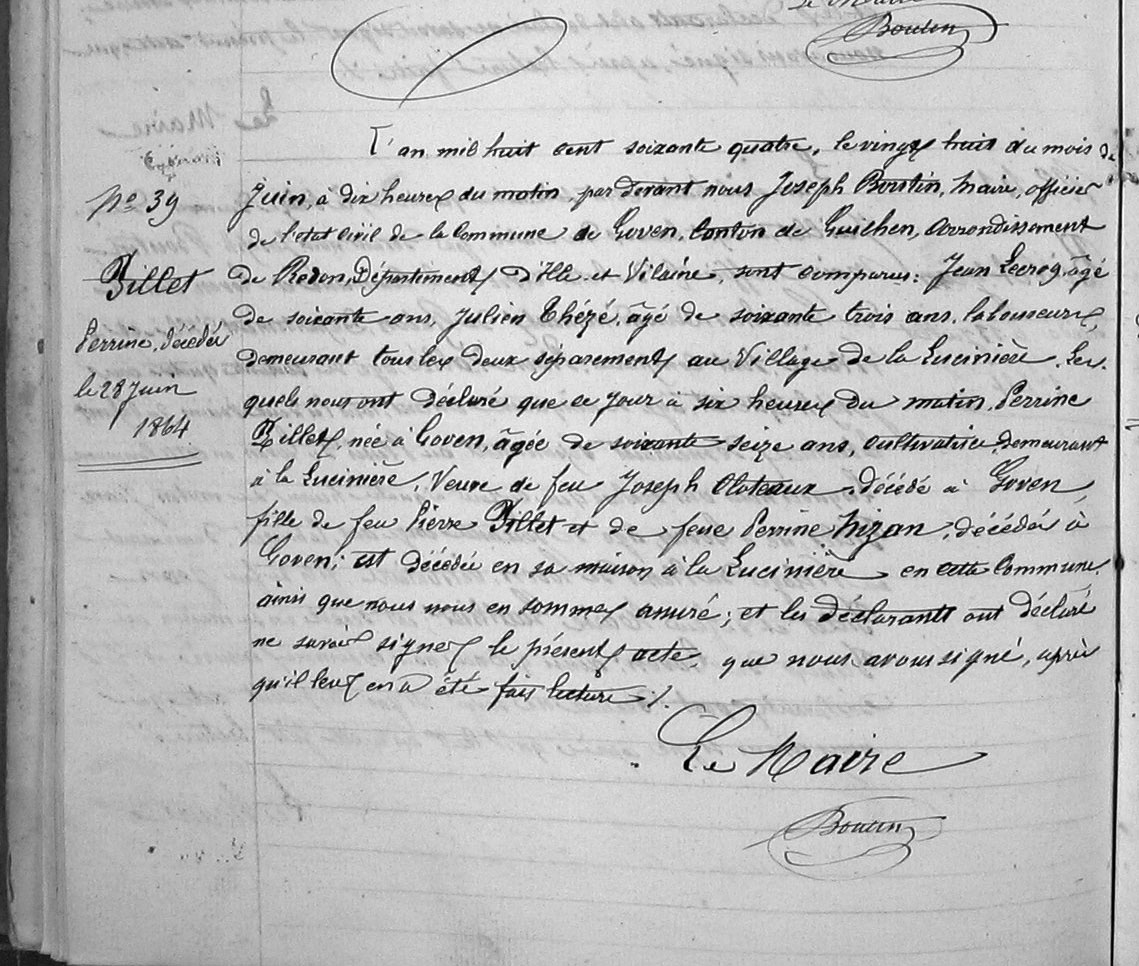 Le Maire
Boutin
Nº 39
Pillet
Perrine, décédée
le 28 Juin
1864
L'an mil huit cent soixante quatre, le vingt huit du mois de
Juin, à dix heures du matin, par devant nous Joseph Boutin, Maire, officier
de l'etat Civil de la Commune de Goven, Canton de Guichen, Arrondissement
de Redon, Département d'Ille et Vilaine, sont comparus: Jean Lecroq, âgé
de soixante ans, Julien Thézé, âgé de soixante trois ans, laboureurs,
demeurant tous les deux séparement au Village de la Lucinière. Les-
quels nous ont déclaré que ce jour à six heures du matin, Perrine
Pillet, née à Goven, âgée de soixante seize ans, cultivatrice demeurant
à la Lucinière, Veuve de feu Joseph Cloteaux décédé à Goven,
fille de feu Pierre Pillet et de feue Perrine Mizan, décédés à
Goven; est décédée en sa maison à la Lucinière en cette Commune,
ainsi que nous nous en sommes assuré; et les déclarants ont déclaré
ne savoir signer le présent acte, que nous avons signé, après
qu'il leur en a été fait lecture ./.
Le Maire
Boutin